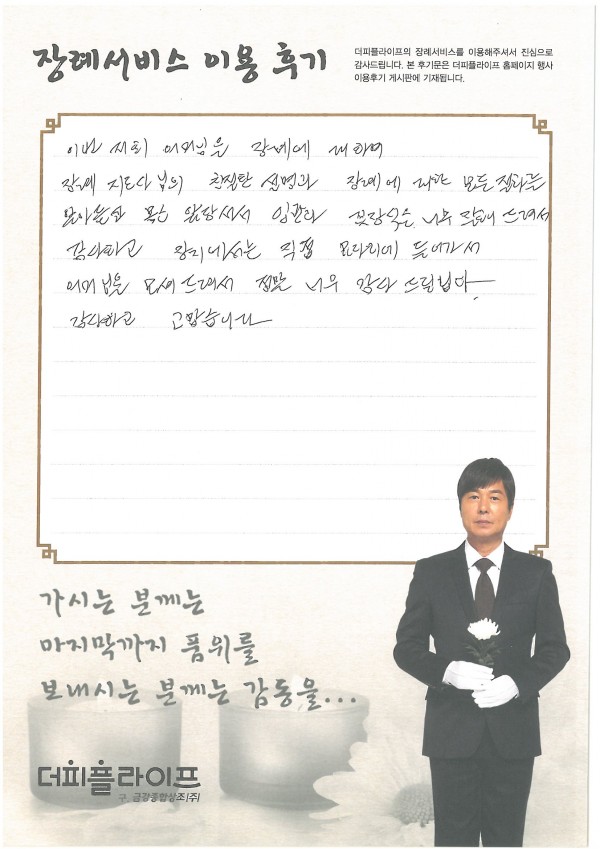 장례서비스 이용 후기
더피플라이프의 장례서비스를 이용해주셔서 진심으로
감사드립니다. 본 후기문은 더피플라이프 홈페이지 행사
이용후기 게시판에 기재됩니다.
이번 저희 어머님을 장례에 대하여
장례 지도사 님의 친절한 설명과 장례에 대한 모든 절차는
입관과 너무 잘해 드려서
감사하고 장지에서는 직접 묘자리에 들어가서
어머님을 모셔 드려서 정말 너무 감사 드립니다
감사하고 고맙습니다
가시는 분께는
마지막까지 품위를
보내시는 분께는 감동을...
더피플라이프
구. 금강종합상조(주)